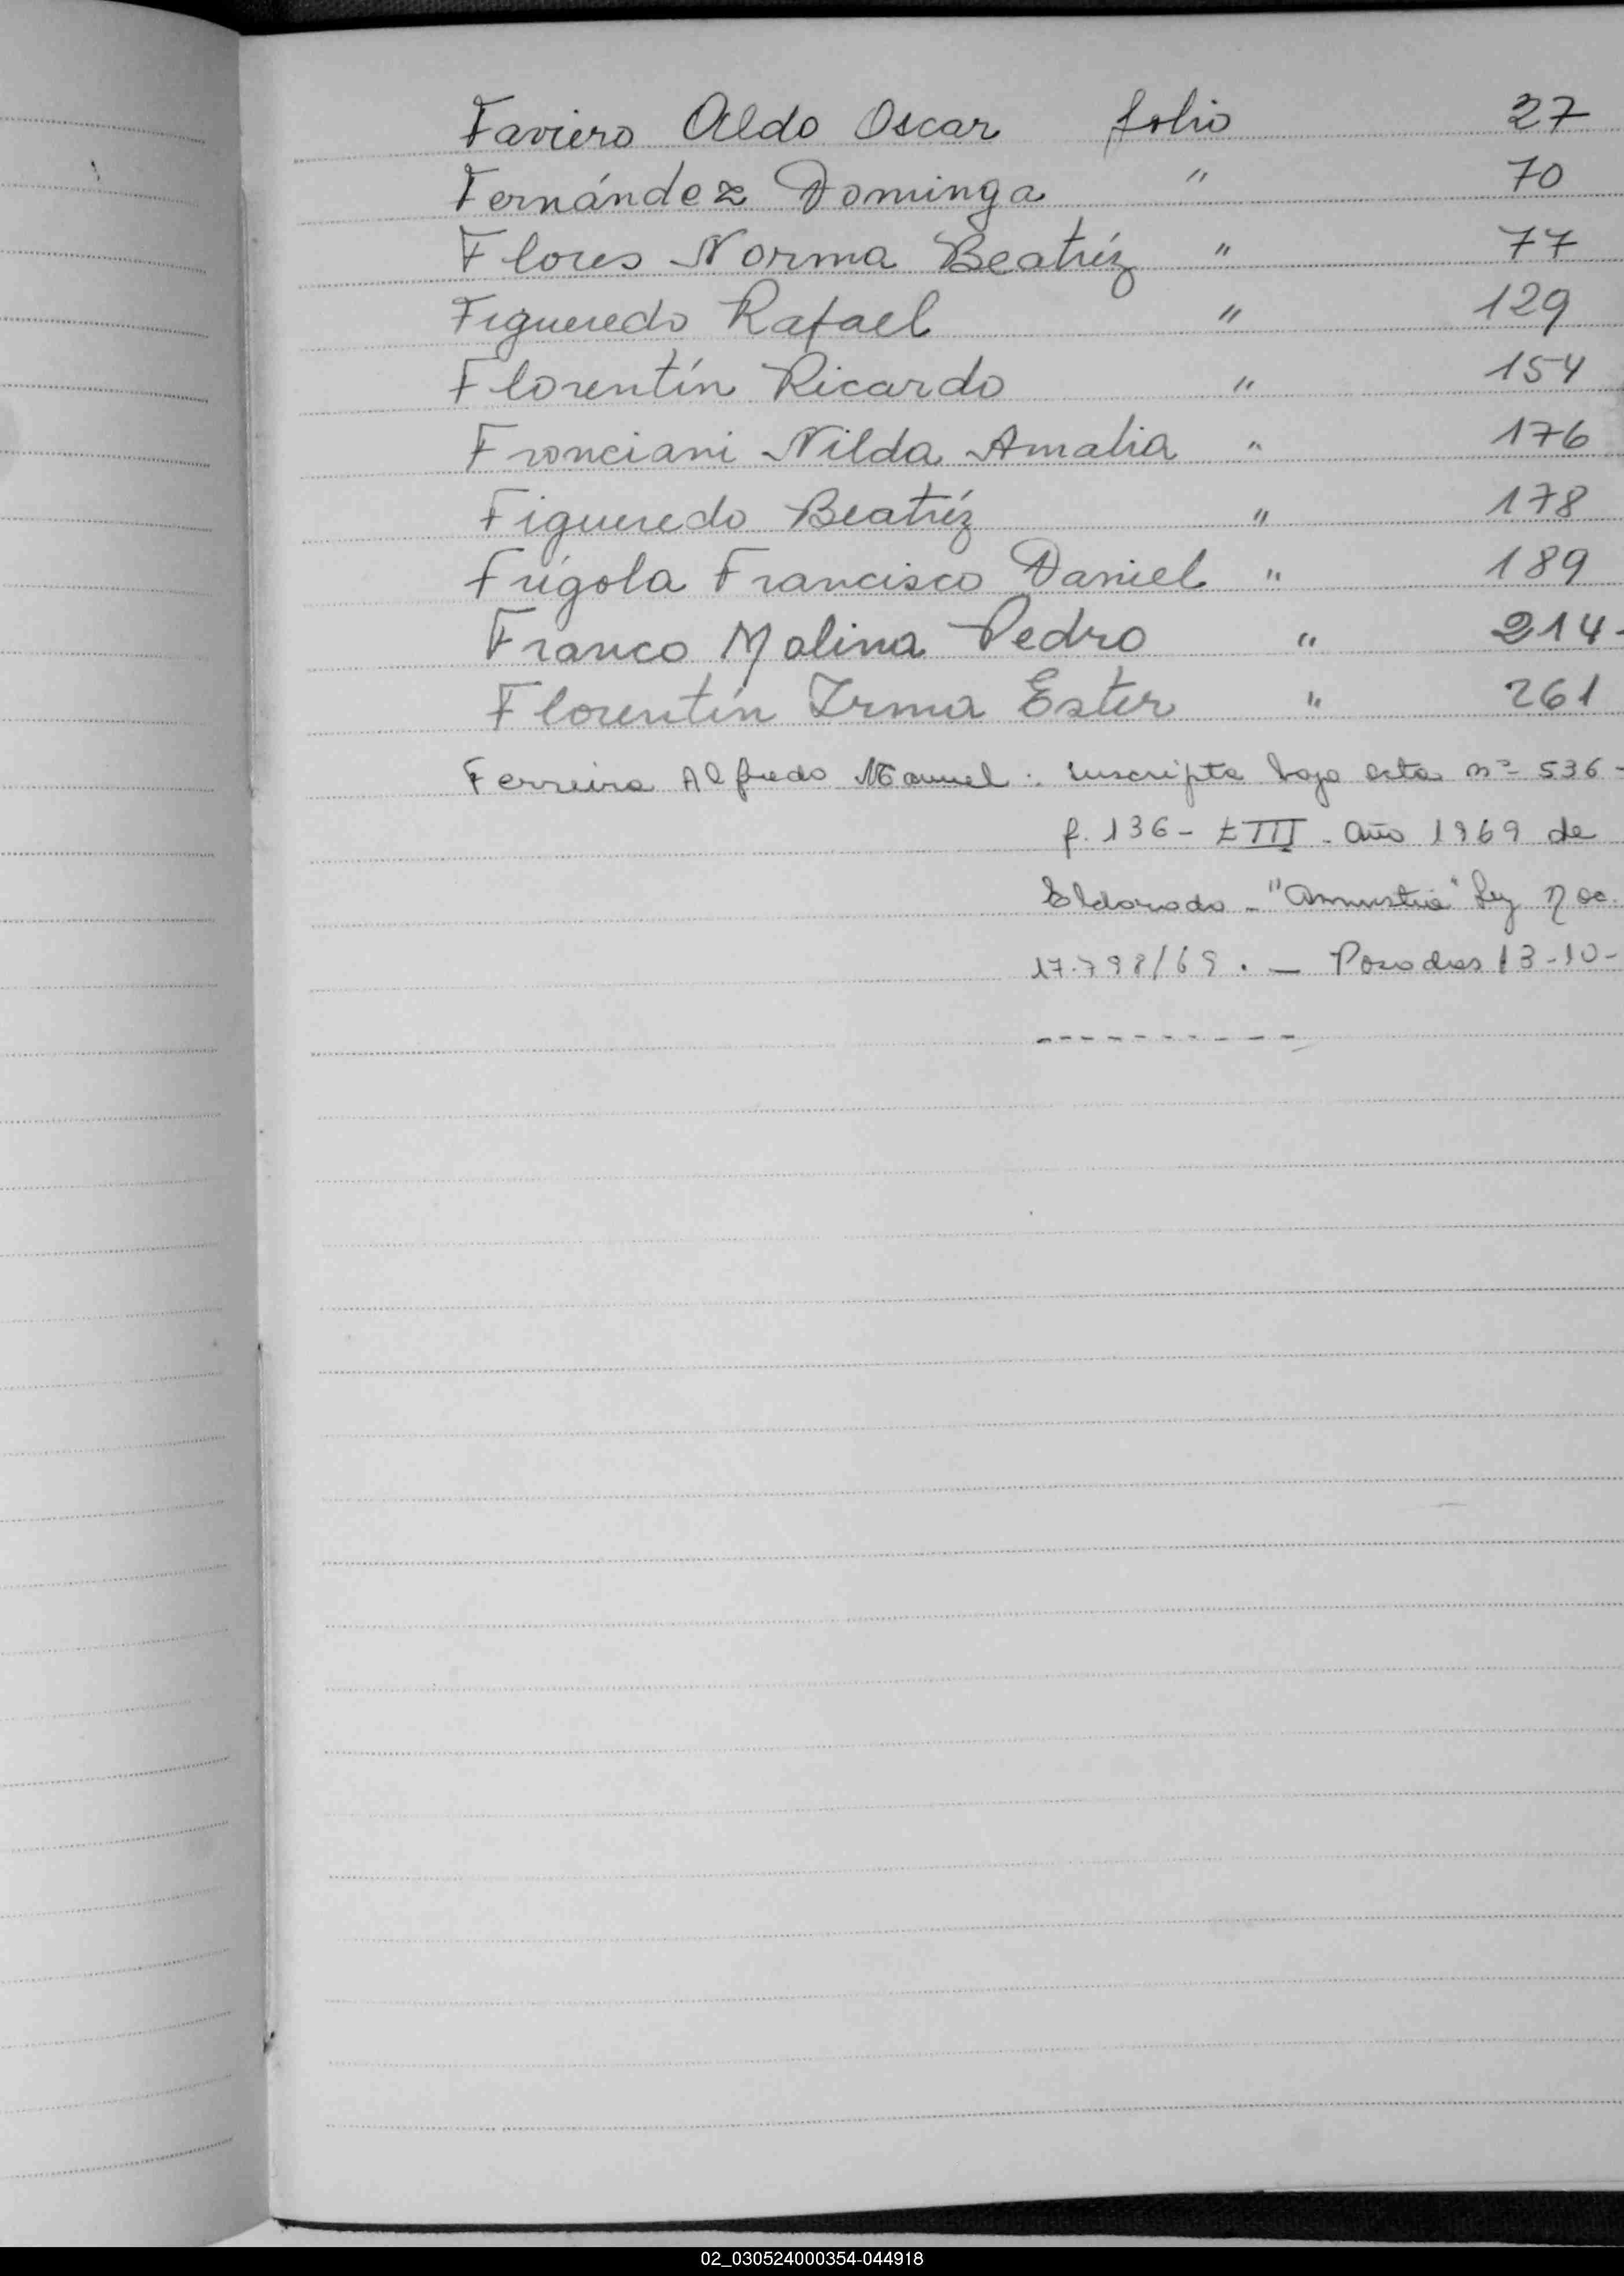 Faviero Aldo Oscar folio 27
Fernández Dominga " 70
Flores Norma Beatríz " 77
Figueredo Rafael " 129
Florentín Ricardo " 154
Fronciani Nilda Amalia " 176
Figueredo Beatríz " 178
Frígola Francisco Daniel " 189
Franco Molina Pedro " 214-
Florentín Irma Ester " 261
Ferreira Alfredo Manuel: inscripta bajo acta nº 536-
f. 136- t III - año 1969 de
Eldorado - "Amnistia" Ley
17.798/69. - Posadas 13-10-
02_030524000354-044918